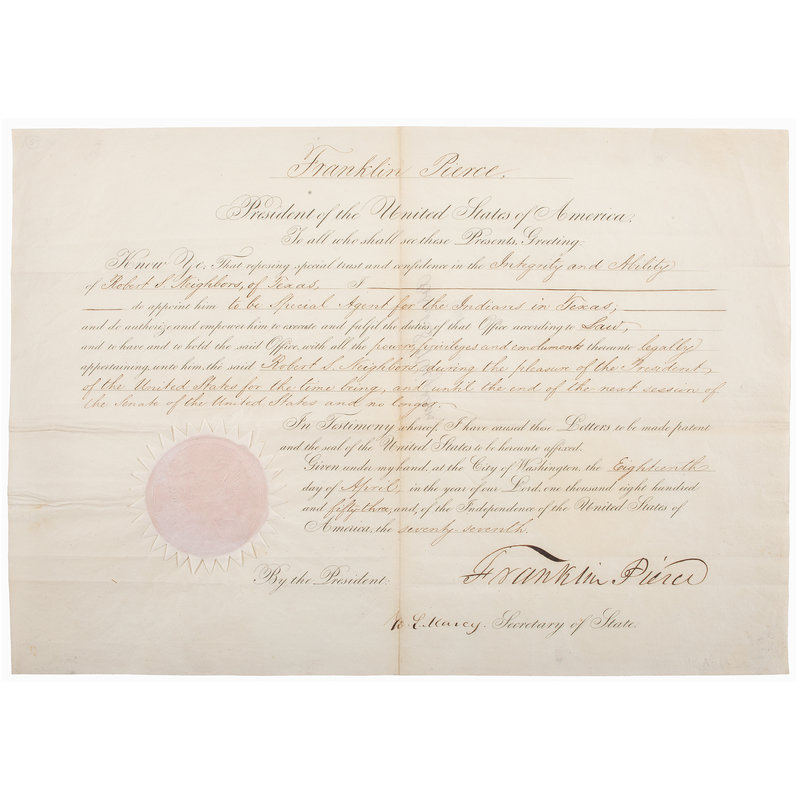 Franklin Pierce,
President of the United States of America;
To all who shall see these Presents, Greeting:
Know Ye; That reposing special trust and confidence in the Integrity and Ability
of Robert S. Neighbors, of Texas, I
do appoint him to be Special Agent for the Indians in Texas;
and do authorize and empower him to execute and fulfil the duties of that Office according to Law,
and to have and to hold the said Office, with all the powers, privileges and emoluments thereunto legally
appertaining, unto him, the said Robert S. Neighbors, during the pleasure of the President
of the United States for the time being, and until the end of the next session of
the Senate of the United States and no longer.
In Testimony whereof, I have caused these Letters to be made patent
and the seal of the United States to be hereunto affixed.
Given under my hand, at the City of Washington, the Eighteenth
day of April, in the year of our Lord, one thousand eight hundred
and fifty three, and, of the Independence of the United States of
America, the seventy-seventh.
By the President: Franklin Pierce
W. L. Marcy. Secretary of State.